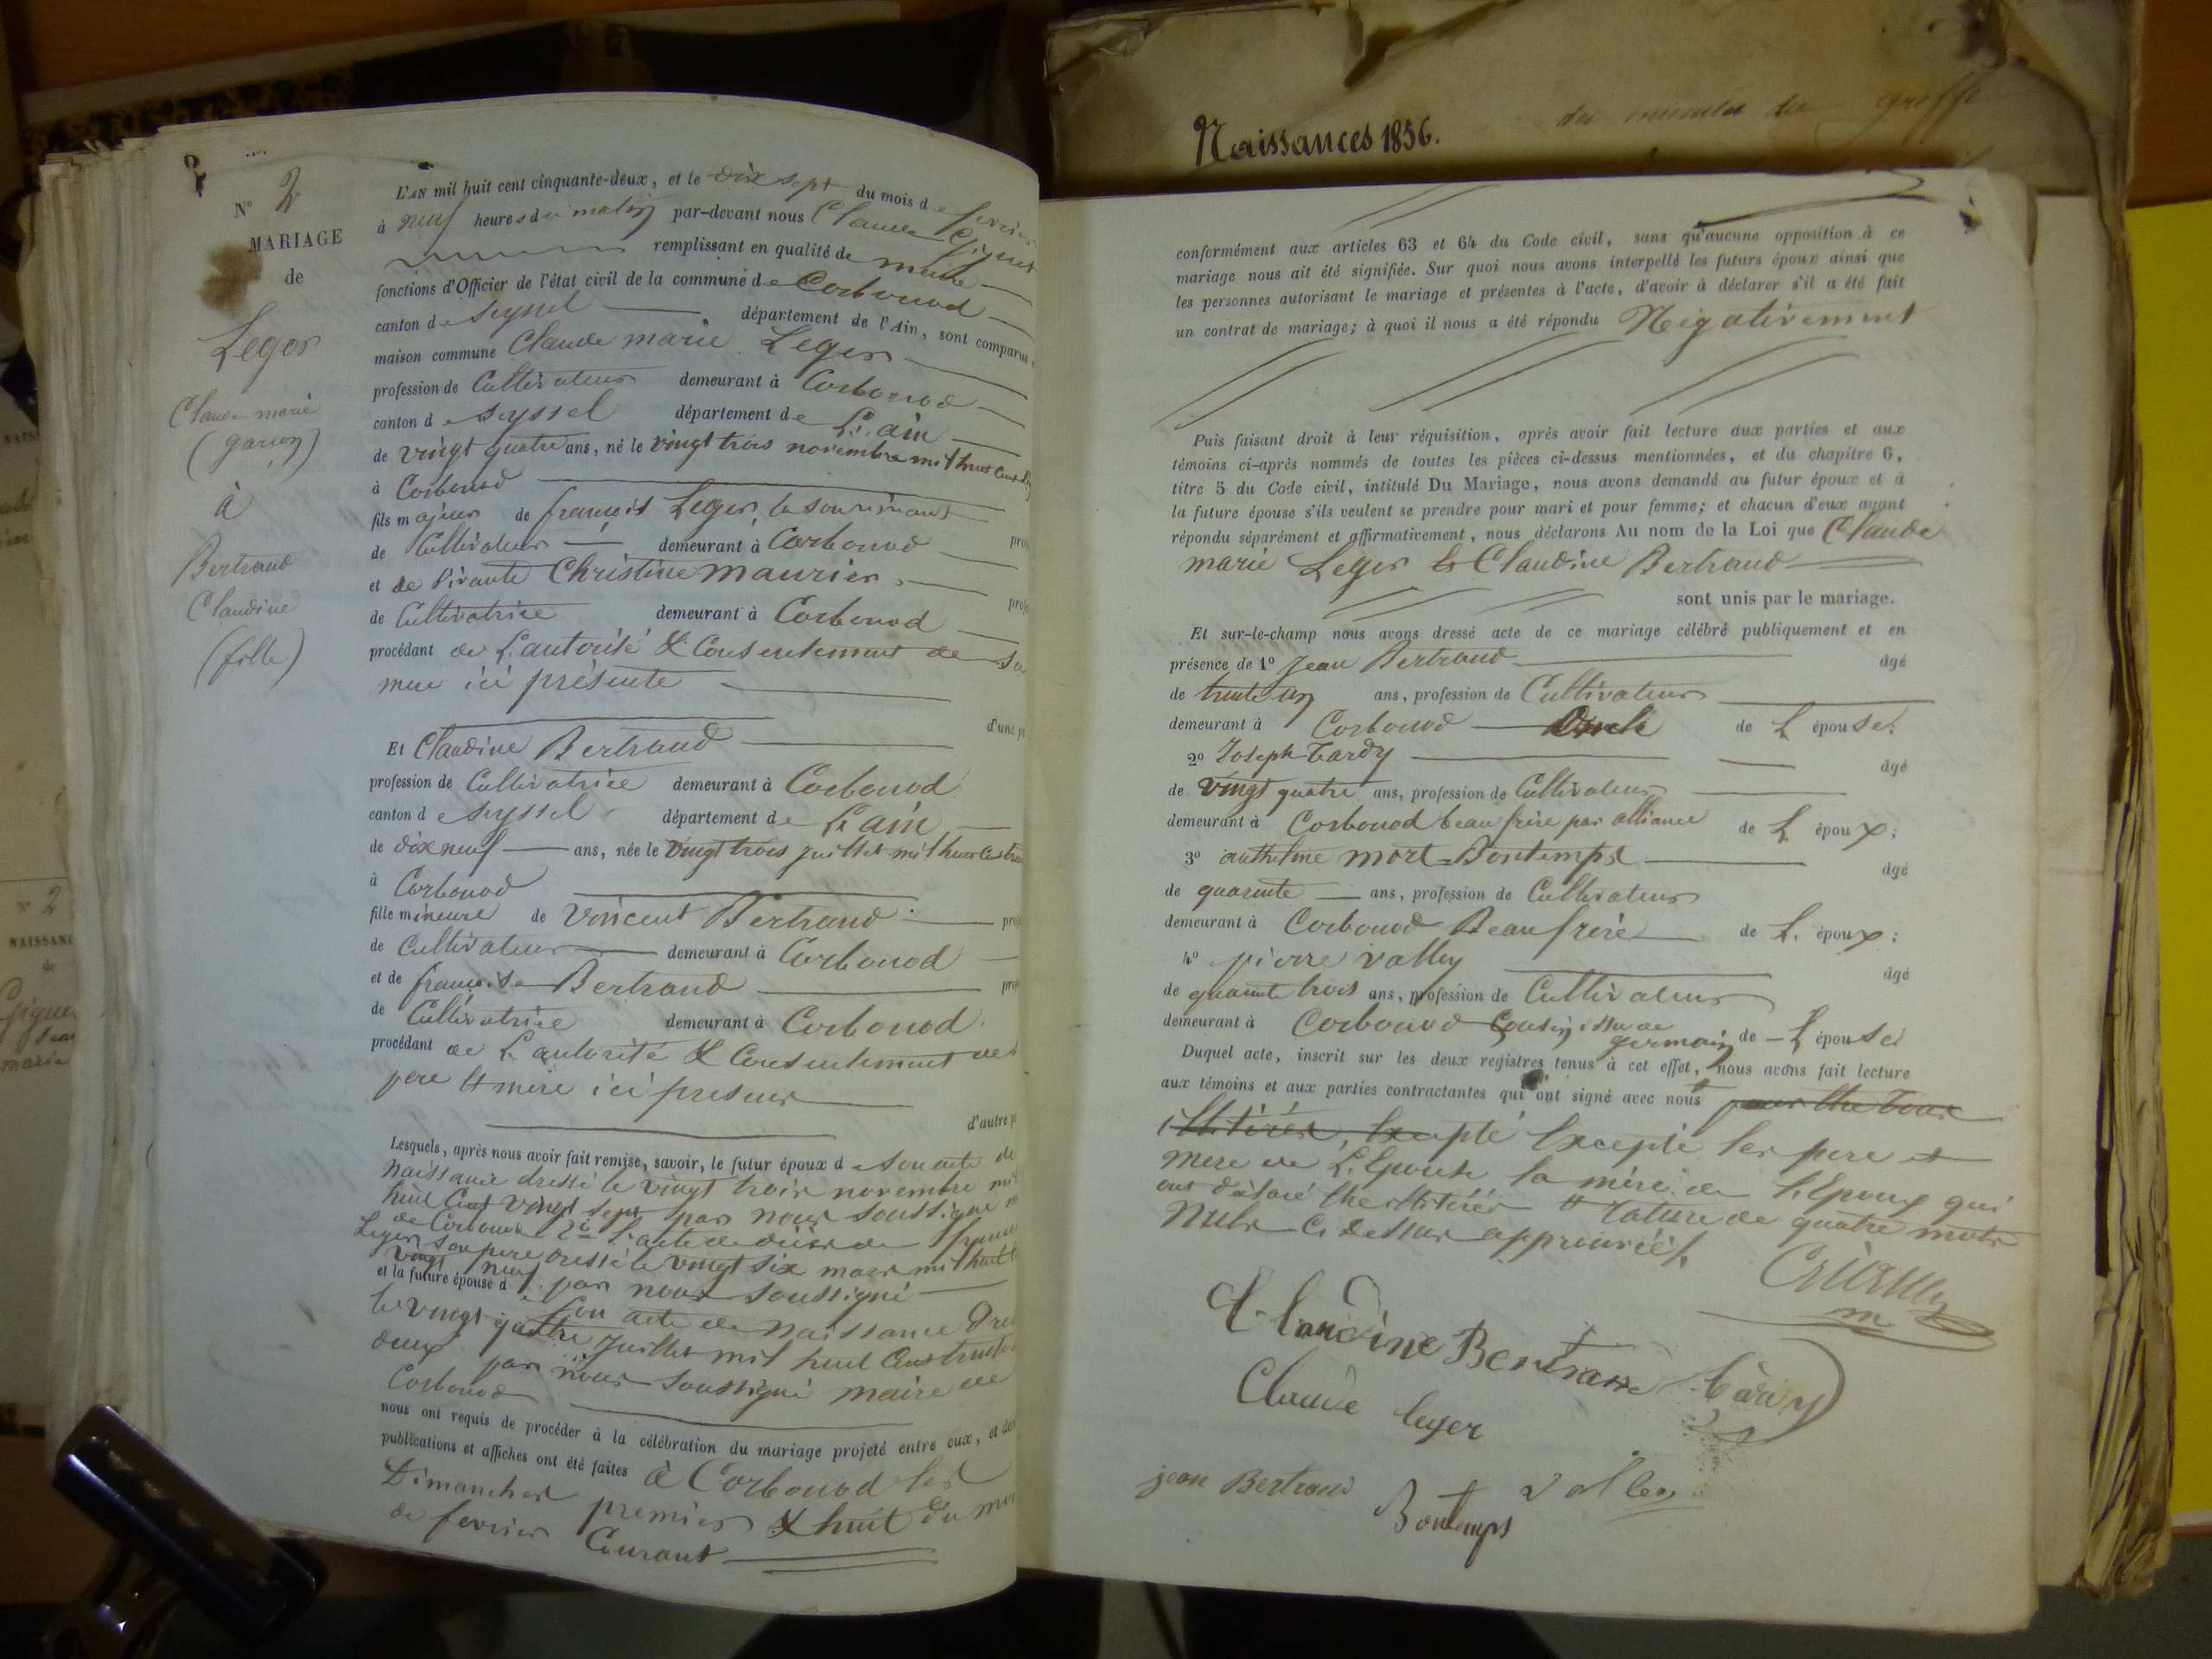 Nº 2
MARIAGE
de
Leger
Claude marie
(garçon)
à
Bertrand
Claudine
(fille)
L'AN mil huit cent cinquante-deux, et le dix sept du mois de fevrier
à neuf heures du matin par-devant nous Claude
remplissant en qualité de maire
fonctions d'Officier de l'état civil de la commune de Corbonod
canton de Seyssel département de l'Ain, sont comparus
maison commune Claude marie Leger
profession de Cultivateur demeurant à Corbonod
canton de Seyssel département de L'ain
de vingt quatre ans, né le vingt trois novembre mil huit cent
à Corbonod
fils majeur de françois Leger
de Cultivateur demeurant à Corbonod
et de vivante Christine maurier
de Cultivatrice demeurant à Corbonod
procédant de L'autorité & Consentement de sa
mere ici présente
d'une p
Et Claudine Bertrand
profession de Cultivatrice demeurant à Corbonod
canton de Seyssel département de L'ain
de dix neuf ans, née le vingt trois juillet mil huit Cent
à Corbonod
fille mineure de Vincent Bertrand
de Cultivateur demeurant à Corbonod
et de françoise Bertrand
de Cultivatrice demeurant à Corbonod
procédant de L'autorité & Consentement de
pere & mere ici presens
d'autre p
Lesquels, après nous avoir fait remise, savoir, le futur époux de son acte de
naissance dressé le vingt trois novembre mil
huit Cent vingt sept par nous soussigné
de Corbonod 2º L'acte de décès de
Leger son pere dressé le vingt six mars mil huit
vingt neuf par nous soussigné
et la future épouse de
son acte de naissance
le vingt quatre juillet mil huit Cent trente
deux par nous soussigné maire de
Corbonod
nous ont requis de procéder à la célébration du mariage projeté entre eux, et
publications et affiches ont été faites à Corbonod les
Dimanches premier & huit du mois
de fevrier Courant
Naissances 1856.
conformément aux articles 63 et 64 du Code civil, sans qu'aucune opposition à ce
mariage nous ait été signifiée. Sur quoi nous avons interpellé les futurs époux ainsi que
les personnes autorisant le mariage et présentes à l'acte, d'avoir à déclarer s'il a été fait
un contrat de mariage; à quoi il nous a été répondu Négativement
Puis faisant droit à leur réquisition, après avoir fait lecture aux parties et aux
témoins ci-après nommés de toutes les pièces ci-dessus mentionnées, et du chapitre 6,
titre 5 du Code civil, intitulé Du Mariage, nous avons demandé au futur époux et à
la future épouse s'ils veulent se prendre pour mari et pour femme; et chacun d'eux ayant
répondu séparément et affirmativement, nous déclarons Au nom de la Loi que Claude
marie Leger & Claudine Bertrand
sont unis par le mariage.
Et sur-le-champ nous avons dressé acte de ce mariage célébré publiquement et en
présence de 1º Jean Bertrand âgé
de trente un ans, profession de Cultivateur
demeurant à Corbonod oncle de L épouse.
2º Joseph Tardy âgé
de vingt quatre ans, profession de Cultivateur
demeurant à Corbonod beau frère par alliance de L époux;
3º anthelme mort-Bontemps âgé
de quarente ans, profession de Cultivateur
demeurant à Corbonod Beaufrére de L. époux;
4º pierre valley âgé
de quarente trois ans, profession de Cultivateur
demeurant à Corbonod Cousin issu de germain de L épouse
Duquel acte, inscrit sur les deux registres tenus à cet effet, nous avons fait lecture
aux témoins et aux parties contractantes qui ont signé avec nous
Excepté les pere et
mere de L'Epouse la mére de l'Epoux qui
ont déclaré etre illitérés & rature de quatre mots
nuls Ci dessus approuvés.
Claudine Bertrand
Tardy
Claude leger
jean Bertrand
Bontemps
valley